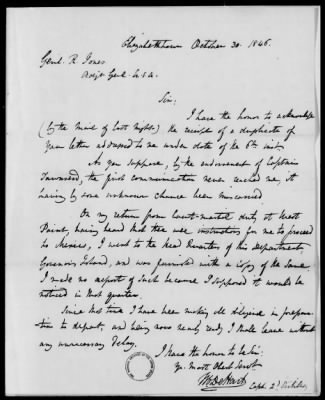 Elizabethtown October 30. 1846.
Genl. R. Jones
Adjt Genl. U.S.A.
Sir:
I have the honor to acknowledge
(by the mail of last night) the receipt of a duplicate of
your letter addressed to me under date of the 6th inst.
As you suppose, by the endorsement of Captain
Townsend, the first communication never reached me, it
having by some unknown chance been miscarried.
On my return from Court-martial duty, at West
Point, having heard that there were instructions for me to proceed
to Mexico, I went to the head Quarters of this Department,
Governors Island, and was furnished with a copy of the same.
I made no report of such because I supposed it would be
noticed in that quarter.
Since that time I have been making all diligence in prepara-
tion to depart, and being now nearly ready I shall leave without
any unnecessary delay.
I have the honor to be Sir:
Yr. Most Obedt Servt
Capt. 2d Artillery